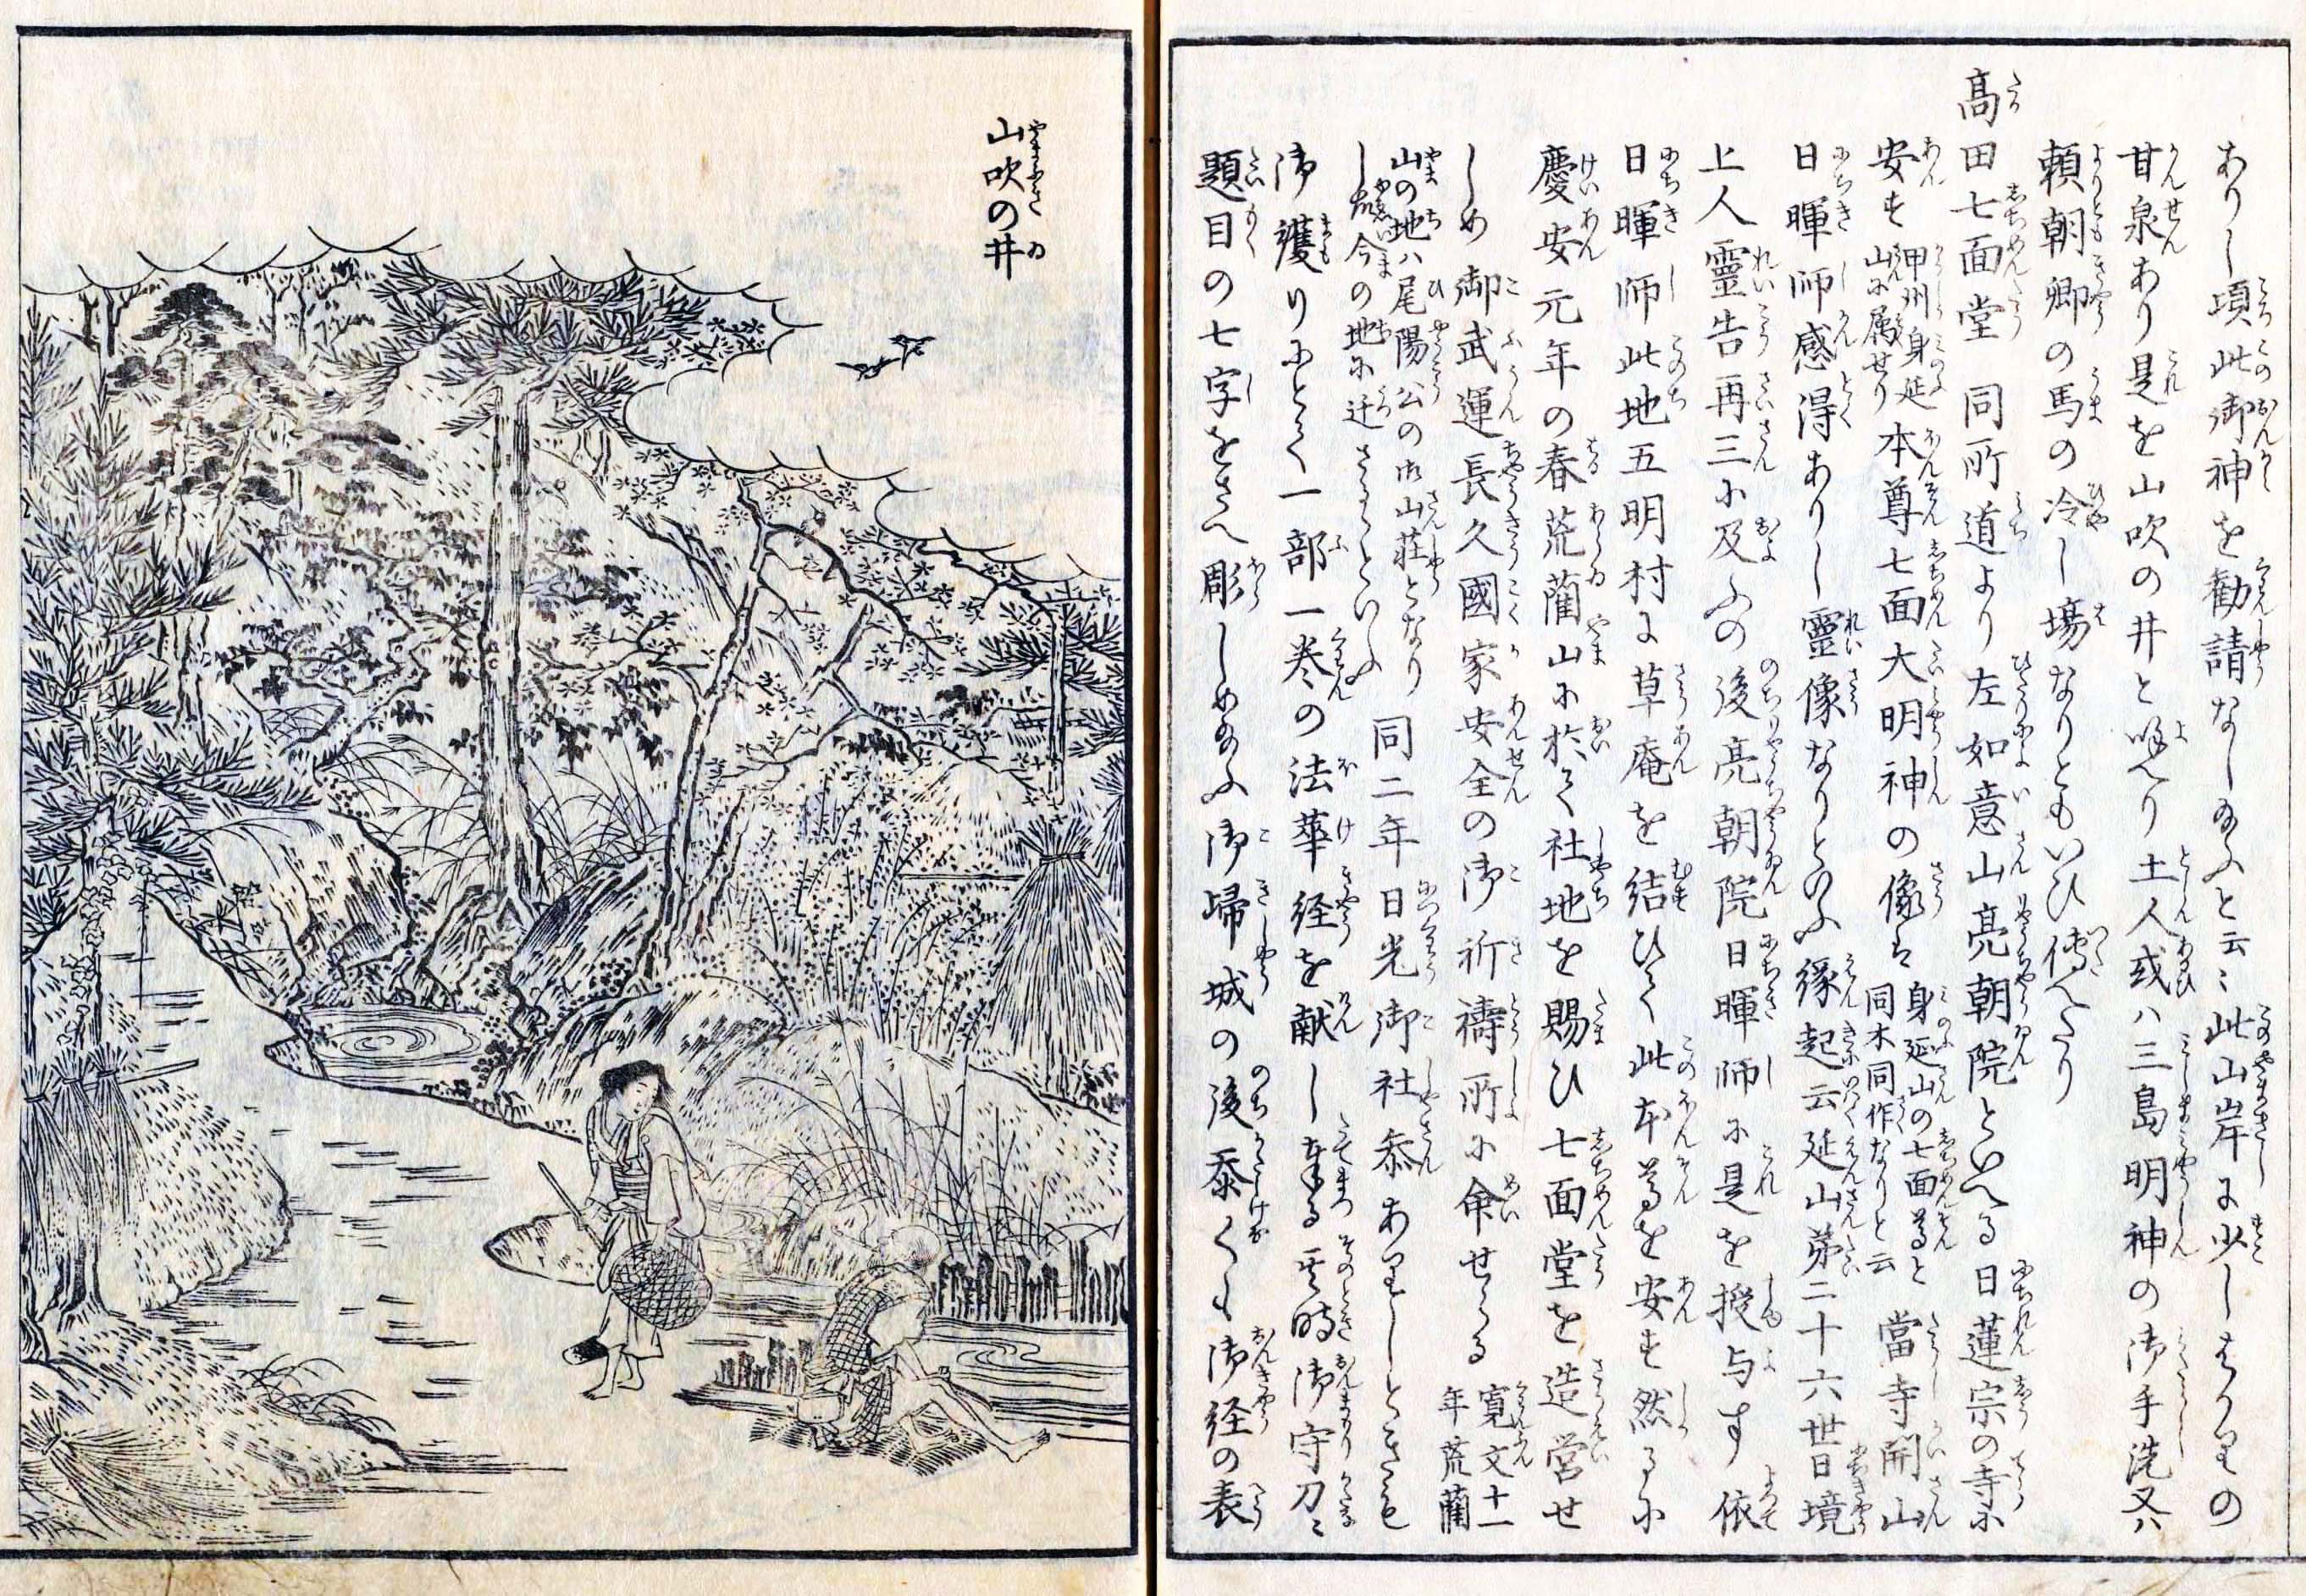 ありし頃此御神を勧請なし給ふと云々此山岸に少しはかりの
甘泉あり是を山吹の井と喚へり土人或ハ三島明神の御手洗又ハ
頼朝卿の馬の冷し場なりともいひ傳へたり
高田七面堂 同所道より左如意山亮朝院といへる日蓮宗の寺に
安す 甲州身延山に属せり 本尊七面大明神の像は 身延山の七面尊と同木同作なりと云 當寺開山
日暉師感得ありし靈像なりといふ縁起云延山第二十六世日境
上人靈告再三に及ふの後亮朝院日暉師に是を授与す依
日暉師此地五明村に草庵を結ひて此本尊を安す然るに
慶安元年の春荒藺山に於て社地を賜ひ七面堂を造営せ
しめ御武運長久國家安全の御祈禱所に命せらる 寛文十一年荒藺
山の地ハ尾陽公の御山荘となりし故今の地に迁さるゝといふ 同二年日光御社参ありしときも
御護りにとて一部一巻の法華経を献し奉る其時御守刀に
題目の七字をさへ彫しめ給ふ御帰城の後忝くも御経の表
山吹の井